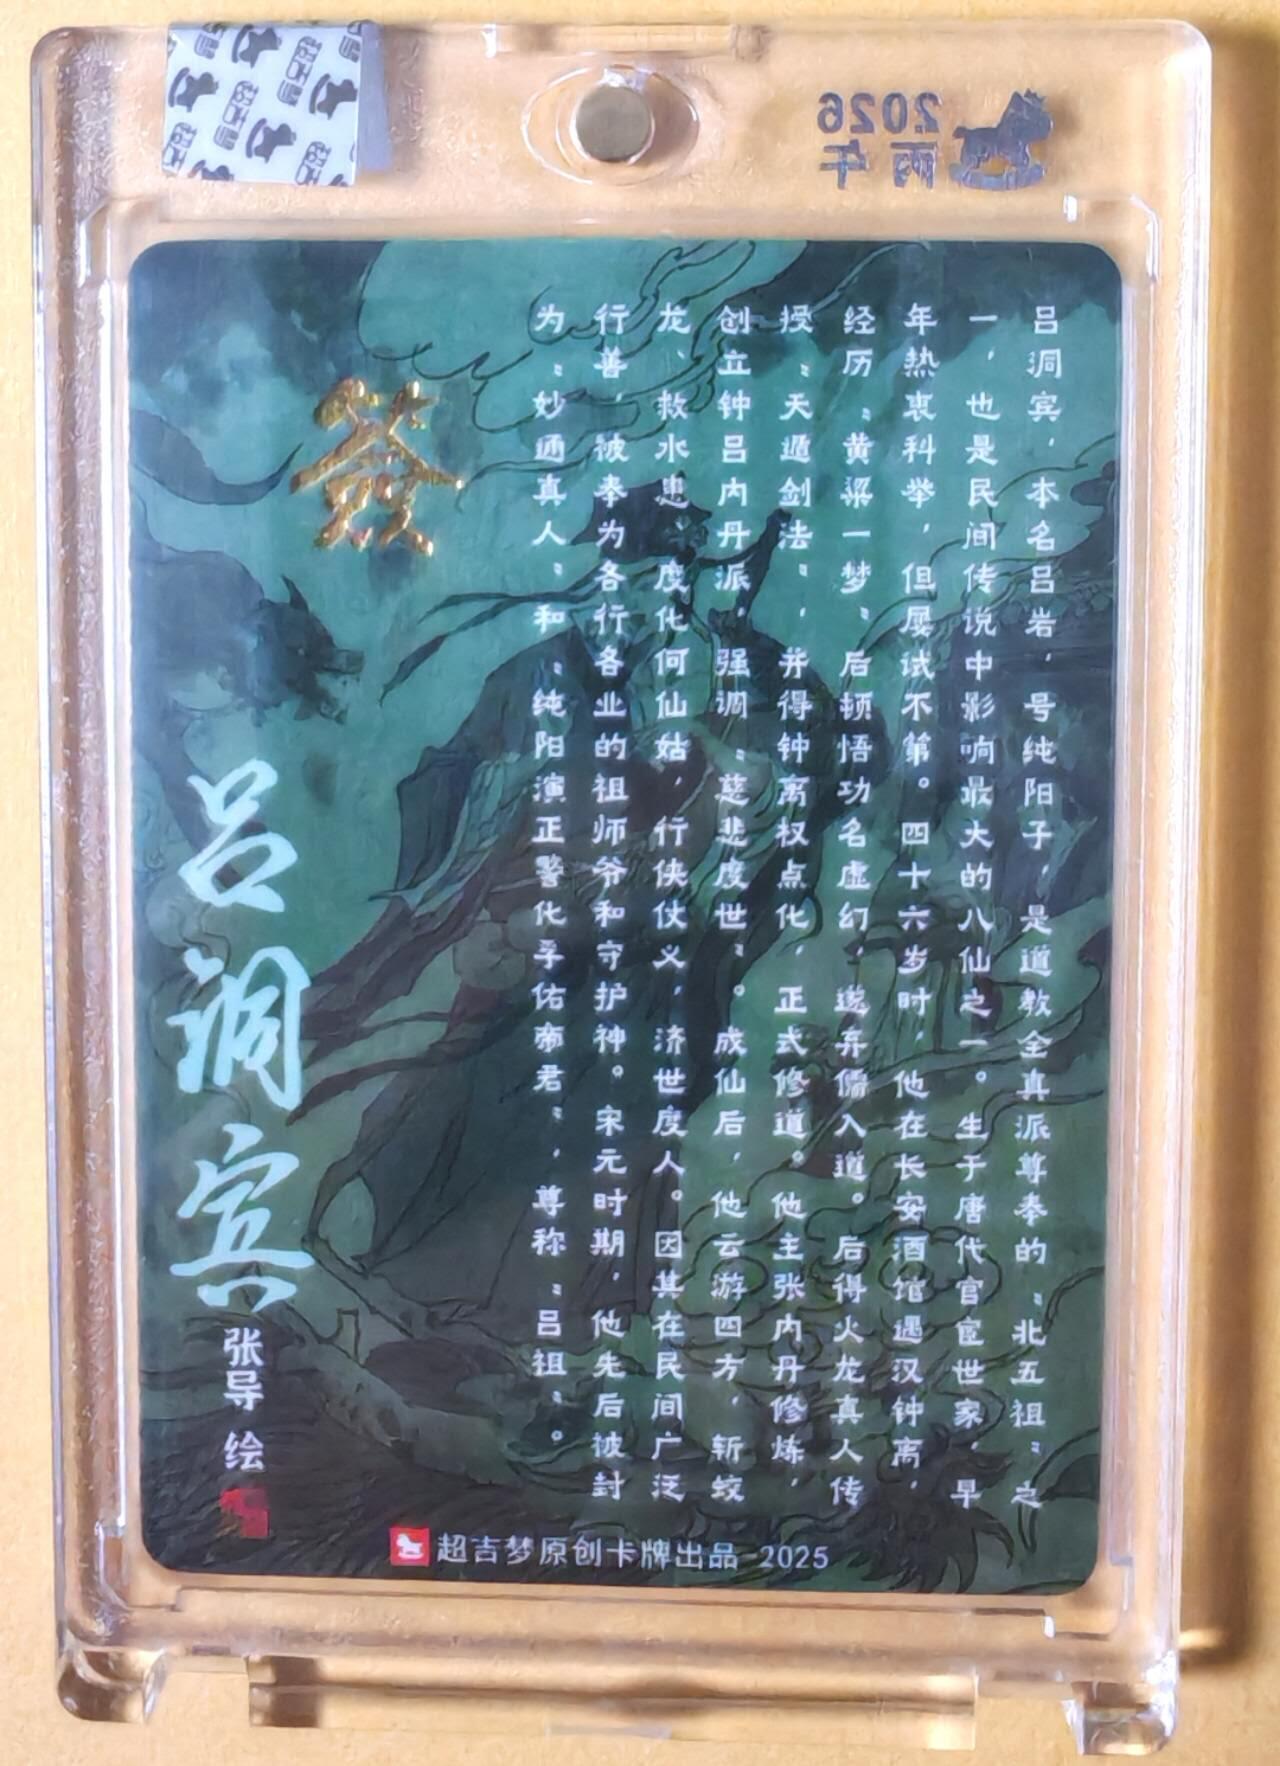 2026
丙午
吕洞宾，本名吕岩，号纯阳子，是道教全真派尊奉的“北五祖”之
一，也是民间传说中影响最大的八仙之一。生于唐代官宦世家，早
年热衷科举，但屡试不第。四十六岁时，他在长安酒馆遇汉钟离，
经历“黄粱一梦”后顿悟功名虚幻，遂弃儒入道。后得火龙真人传
授“天遁剑法”，并得钟离权点化，正式修道。他主张内丹修炼，
创立钟吕内丹派，强调“慈悲度世”。成仙后，他云游四方，斩蛟
龙、救水患、度化何仙姑，行侠仗义，济世度人。因其在民间广泛
行善，被奉为各行各业的祖师爷和守护神。宋元时期，他先后被封
为“妙通真人”和“纯阳演正警化孚佑帝君”，尊称“吕祖”。
吕洞宾
张导 绘
超吉梦原创卡牌出品 2025